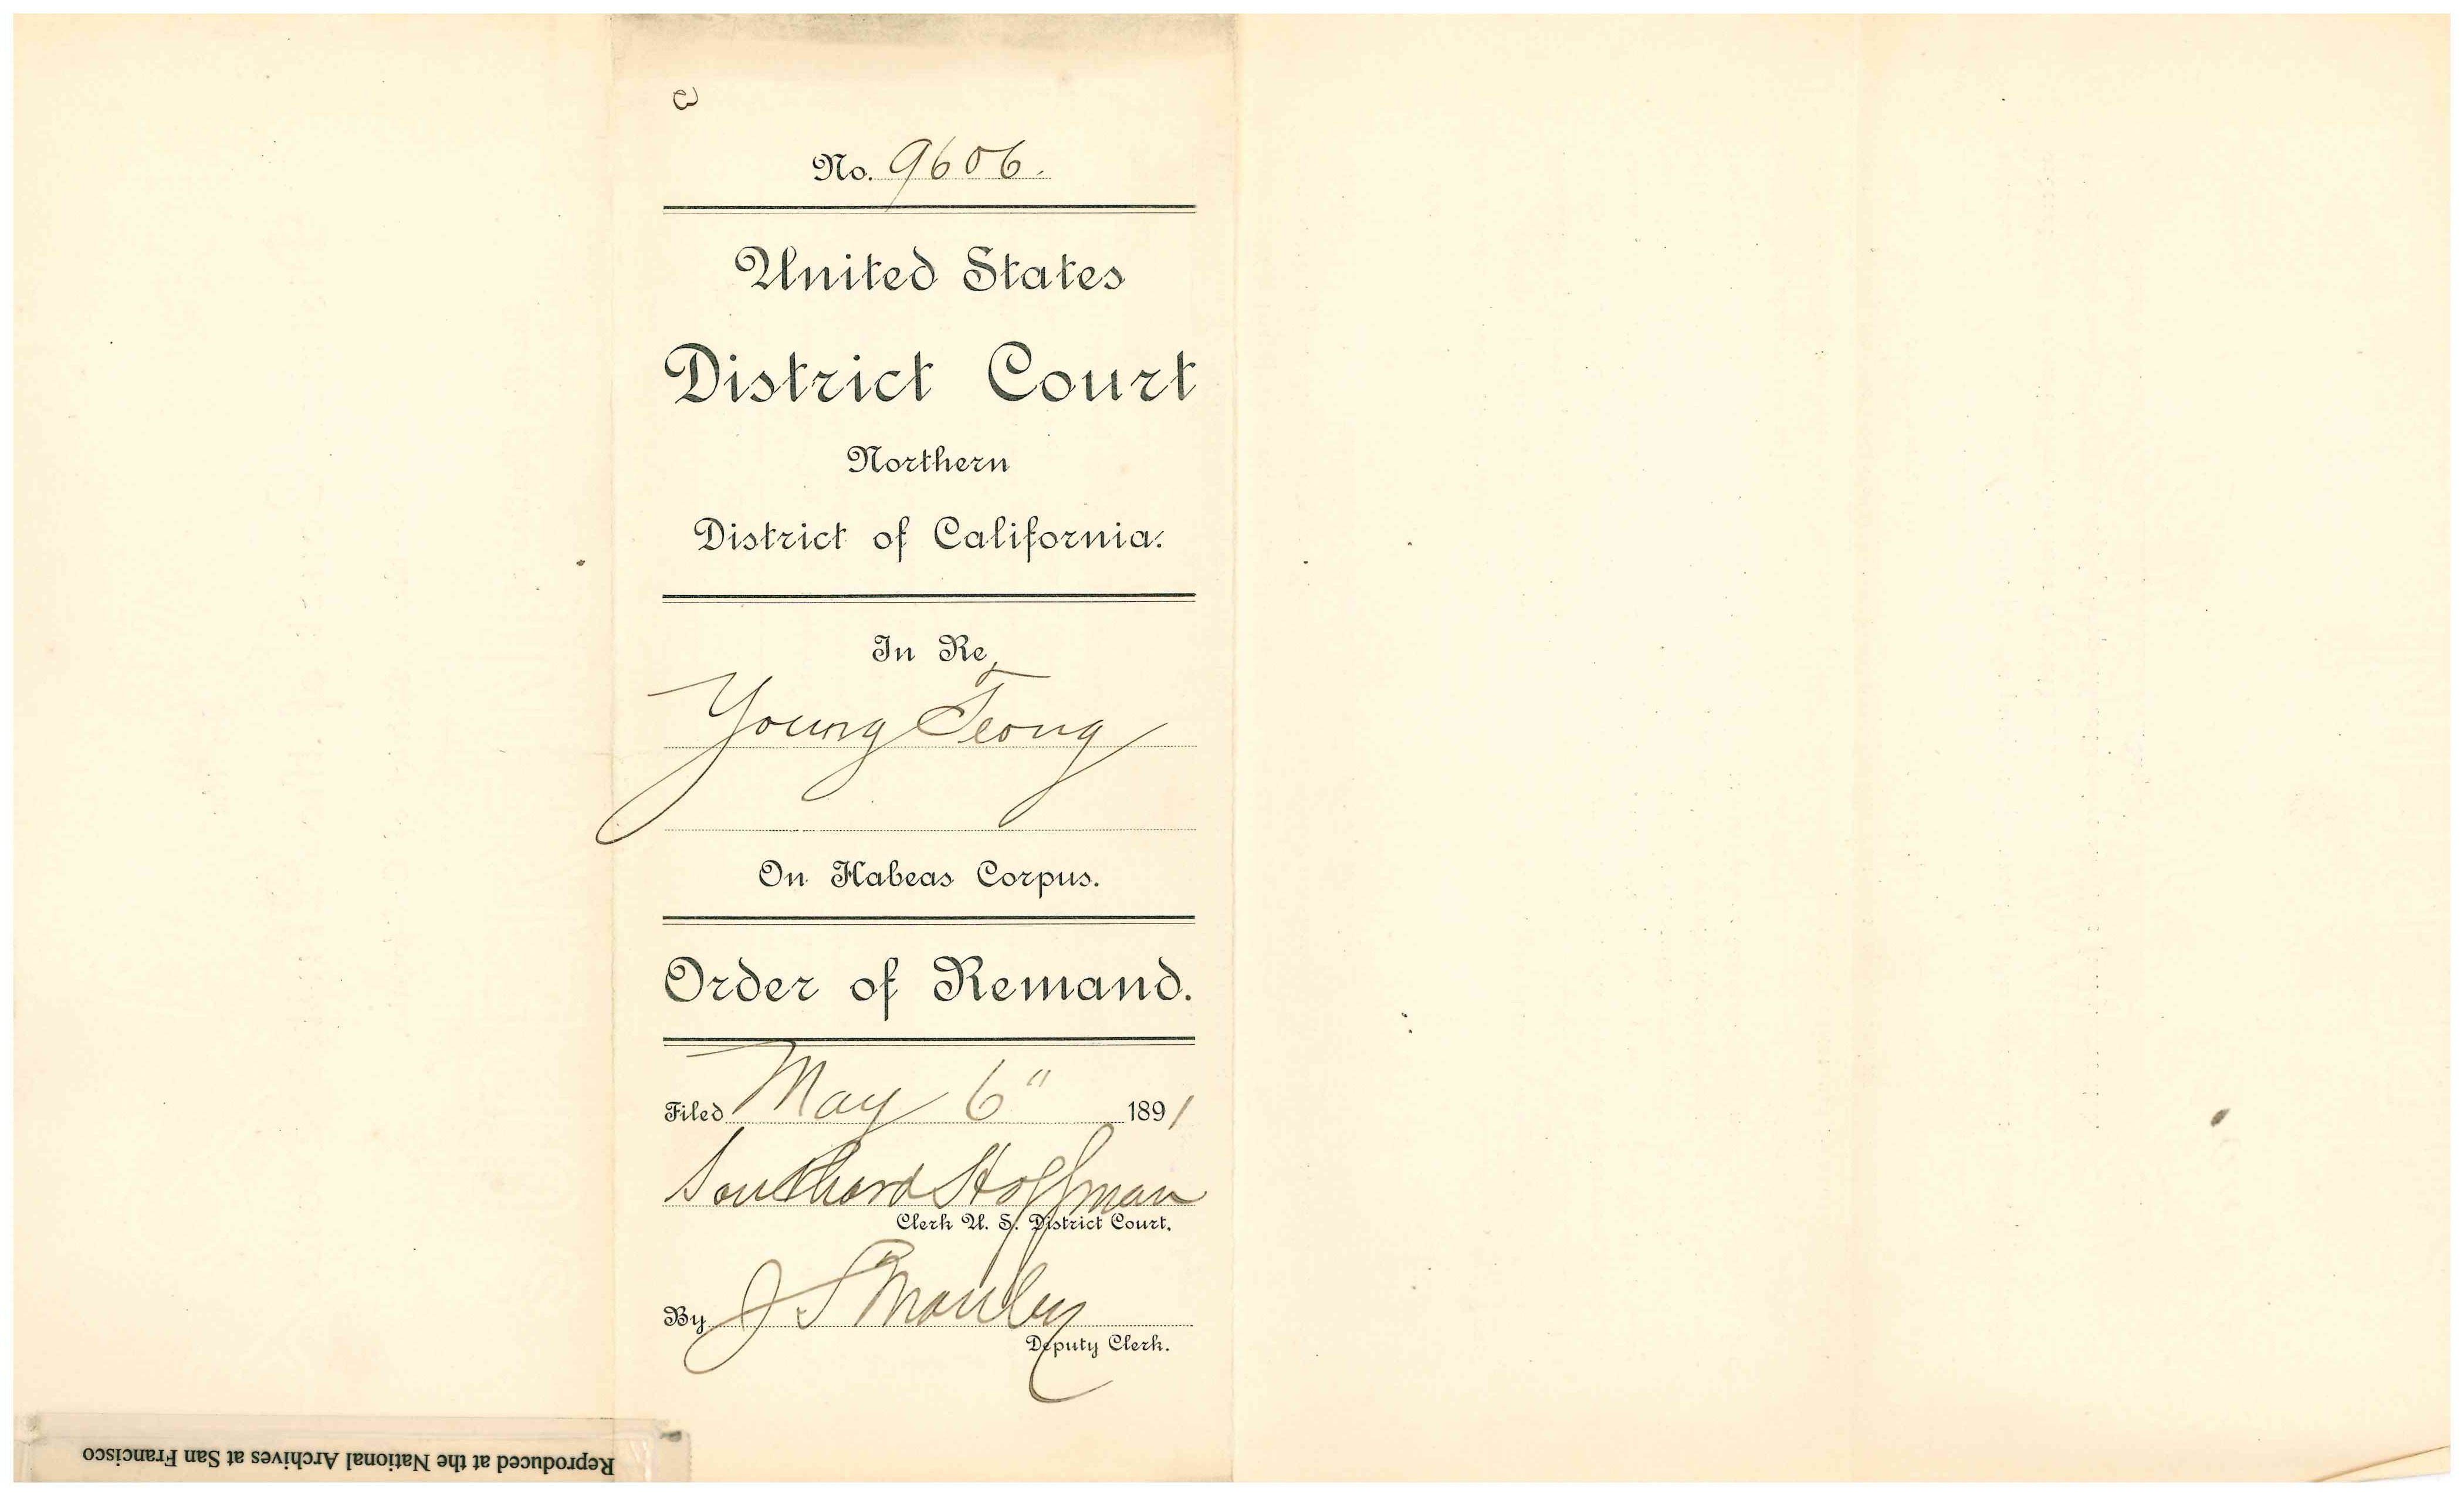 No. 9606.
United States
District Court
Northern
District of California.
In Re
Young Teong
On Habeas Corpus.
Order of Remand.
Filed May 6" 1891
Southard Hoffman
Clerk U. S. District Court.
By J S Manley
Deputy Clerk.
Reproduced at the National Archives at San Francisco